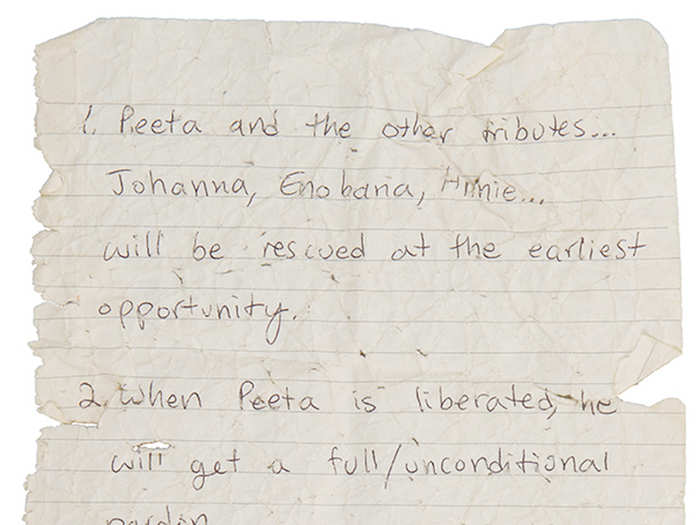 1. Peeta and the other tributes...
Johanna, Enobaria, Annie...
will be rescued at the earliest
opportunity.
2. When Peeta is liberated, he
will get a full/unconditional
pardon